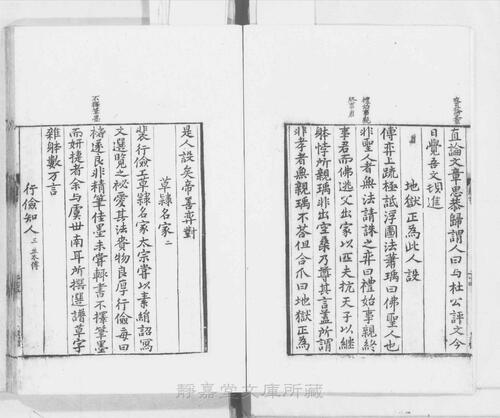 直論文章思恭歸謂人曰与杜公評文今
日覺吾文頓進
地獄正為此人設
傅弈上疏極詆浮圖法蕭瑀曰佛聖人也
非聖人者無法請誅之弈曰禮始事親終
事君而佛逃父出家以匹夫抗天子以継
躰悖所親瑀非出空桑乃尊其言蓋所謂
非孝者無親瑀不荅但合爪曰地獄正為
禮始事親
終事君
是人設矣帝善弈對
草隷名家 二
裴行儉工草隷名家太宗嘗以素絹詔冩
文選覽之祕愛其法賚物良厚行儉每曰
褚遂良非精筆佳墨未甞輙書不擇筆墨
而妍捷者余与虞世南耳所撰選譜草字
雜躰數万言
行儉知人 三 並本傳
不擇筆墨
靜嘉堂文庫所藏